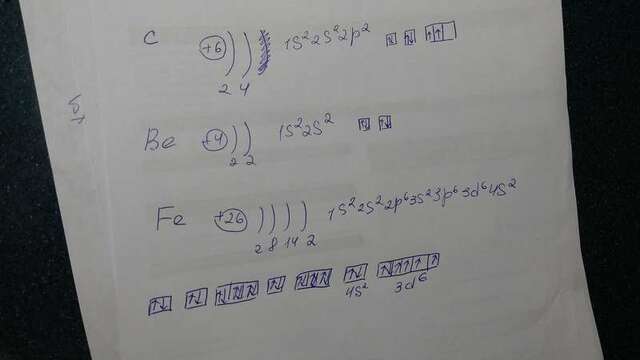 C
+6 ) ) 1S²2S²2p² ↑↓ ↑↓ ↑ ↑
2 4
Be +4 ) ) 1S²2S² ↑↓ ↑↓
2 2
Fe +26 ) ) ) ) 1S²2S²2p⁶3S²3p⁶3d⁶4S²
2 8 14 2
↑↓ ↑↓ ↑↓ ↑↓ ↑↓ ↑↓ ↑↓ ↑↓ ↑↓ ↑↓ ↑↓ ↑ ↑ ↑ ↑
4S² 3d6